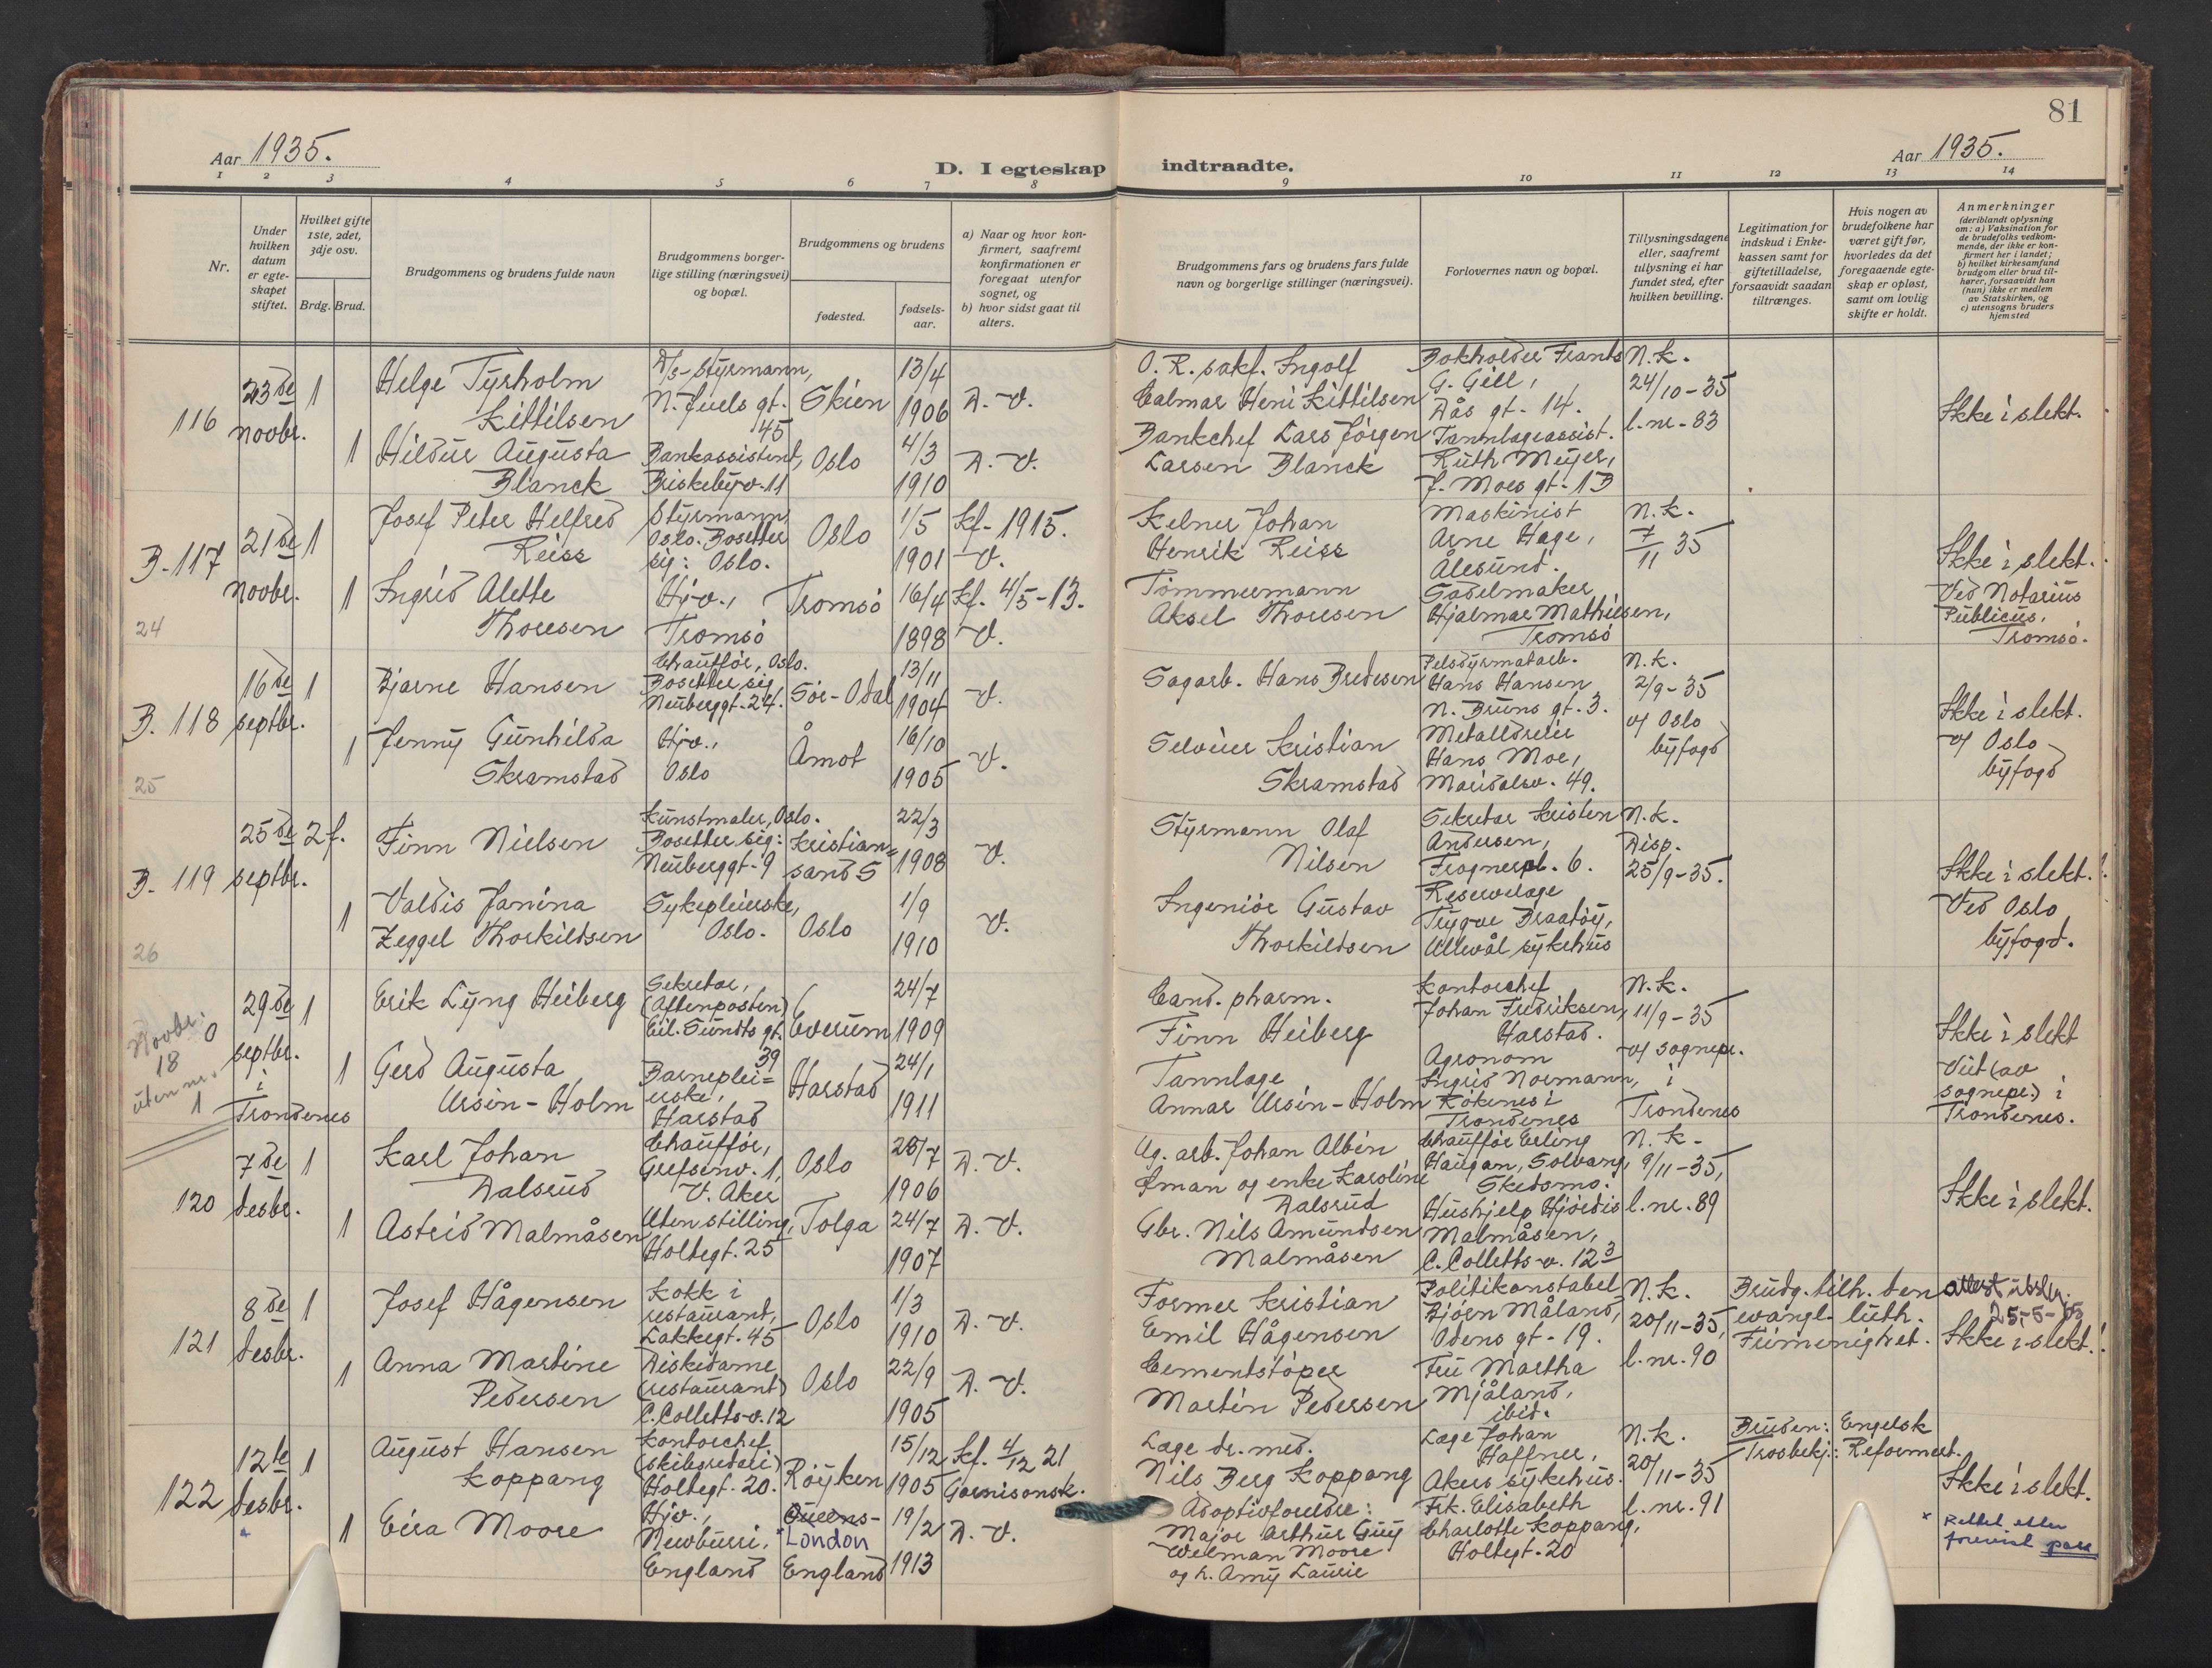 81
Aar 1935.
D. I egteskap indtraadte.
Aar 1935.
1 2 3 4 5 6 7 8 9 10 11 12 13 14
Nr.
Under hvilken datum er egte-skapet stiftet.
Hvilket gifte 1ste, 2det, 3dje osv.
Brdg. Brud.
Brudgommens og brudens fulde navn
Brudgommens borger-lige stilling (næringsvei) og bopæl.
Brudgommens og brudens
fødested.
fødsels-aar.
a) Naar og hvor kon-firmert, saafremt konfirmationen er foregaat utenfor sognet, og
b) hvor sidst gaat til alters.
Brudgommens fars og brudens fars fulde navn og borgerlige stillinger (næringsvei).
Forlovernes navn og bopæl.
Tillysningsdagene eller, saafremt tillysning ei har fundet sted, efter hvilken bevilling.
Legitimation for indskud i Enke-kassen samt for giftetilladelse, forsaavidt saadan tiltrænges.
Hvis nogen av brudefolkene har været gift før, hvorledes da det foregaaende egte-skap er opløst, samt om lovlig skifte er holdt.
Anmerkninger
(deriblandt oplysning om: a) Vaksination for de brudefolks vedkom-mende, der ikke er kon-firmert her i landet; b) hvilket kirkesamfund brudgom eller brud til-hører, forsaavidt han (hun) ikke er medlem av Statskirken, og c) utensogns bruders hjemsted
116
23de novbr.
1
Helge Tyrholm Kittilsen
D/s-styrmann, N. Juels gt. 45
Skien
13/4 1906
D. V.
O. R. sakf. Ingolf Calmar Heni Kittilsen
Bokholder Frants G. Gell, Dås gt. 14.
N. k. 24/10-35 l. nr. 83
Ikke i slekt.
1
Hildur Augusta Blanck
Bankassistent, Briskebyv. 11
Oslo
4/3 1910
D. V.
Bankchef Lars Jörgen Larsen Blanck
Tannlægeassist. Ruth Meyer, J. Moes gt. 1 B
B. 117
24
21de novbr.
1
Josef Peter Helfred Reiss
Styrmann, Oslo. Bosetter sig: Oslo.
Oslo
1/5 1901
kf. 1915. V.
Kelner Johan Henrik Reiss
Maskinist Arne Hage, Ålesund.
N. k. 7/11 35
Ikke i slekt. Ved Notarius Publicus, Tromsö.
1
Ingrid Alette Thoresen
Hjv., Tromsö
Tromsö
16/4 1898
kf. 4/5-13. V.
Tömmermann Aksel Thoresen
Sadelmaker Hjalmar Mathiesen, Tromsö
B. 118
25
16de septbr.
1
Bjarne Hansen
Chaufför, Oslo. Bosetter sig Neuberggt. 24.
Sör-Odal
13/11 1904
V.
Sagarb. Hans Bredesen
Pelsdyrmatarb. Hans Hansen N. Bruns gt. 3.
N. k. 2/9-35 v/ Oslo byfogd
Ikke i slekt. v/ Oslo byfogd
1
Jenny Gunhilda Skramstad
Hjv., Oslo
Åmot
16/10 1905
V.
Selveier Kristian Skramstad
Metalldreier Hans Moe, Maridalsv. 49.
B. 119
26
25de septbr.
2 f.
Finn Nielsen
Kunstmaler, Oslo. Bosetter sig: Neuberggt. 9
Kristian=sand S
22/3 1908
V.
Styrmann Olaf Nilsen
Sekretær Kristen Andersen, Frognerpl. 6.
N. k. Disp. 25/9-35.
Ikke i slekt. Ved Oslo byfogd.
1
Valdis Janina Zeggel Thorkildsen
Sykepleierske, Oslo.
Oslo
1/9 1910
V.
Ingeniör Gustav Thorkildsen
Reservelæge Trygve Braatöy, Ullevål sykehus
Novbr: 0
18
uten nr. 1
29de septbr. i Trondenes
1
Erik Lyng Heiberg
Sekretær, (Aftenposten) Eil. Sundts gt. 39
Everum
24/7 1909
Cand. pharm. Finn Heiberg
Kontorchef Johan Fredriksen, Harstad.
N. k. 11/9-35 v/ sognepr. i Trondenes
Ikke i slekt Viet (av sognepr.) i Trondenes.
1
Gerd Augusta Ursin-Holm
Barneplei=erske, Harstad
Harstad
24/1 1911
Tannlæge Annar Ursin-Holm
Agronom Ingrid Normann, Kökenes i Trondenes
120
7de desbr.
1
Karl Johan Dalsrud
Chaufför, Grefsenv. 1, V. Aker
Oslo
25/7 1906
D. V.
Ug. arb. Johan Albin Öman og enke Karoline Dalsrud
Chaufför Erling Haugan, Solvang, Skedsmo.
N. k. 9/11-35, l. nr. 89
Ikke i slekt.
1
Astrid Malmåsen
Uten stilling, Holtegt. 25
Tolga
24/7 1907
D. V.
Gbr. Nils Amundsen Malmåsen
Hushjelp Hjördis Malmåsen, C. Colletts v. 12 3
121
8de desbr.
1
Josef Hågensen
Kokk i restaurant, Lakkegt. 45
Oslo
1/3 1910
D. V.
Former Kristian Emil Hågensen
Politikonstabel Bjørn Måland, Odens gt. 19.
N. k. 20/11-35, l. nr. 90
Brudg. tilh. den evangl. luth. Frimenighet.
attest utstedt. 25-5-
Ikke i slekt.
1
Anna Martine Pedersen
Diskedame (restaurant) C. Colletts v. 12
Oslo
22/9 1905
D. V.
Cementstöper Martin Pedersen
Fru Martha Mjåland, ibid.
122
12te desbr.
1
August Hansen Koppang
Kontorchef (skibsrederi) Holtegt. 20.
Röyken
15/12 1905
kf. 4/12 21 Garnisonsk.
Læge dr. med. Nils Berg Koppang
Læge Johan Haffner, Akers sykehus.
N. k. 20/11-35 l. nr. 91
Bruden: Engelsk Trosbekj.: Reformert.
Ikke i slekt.
1
Eira Moore
Hjv., Newburri, England
Queens- *London England
19/2 1913
D. V.
Adoptivforeldre: Major Arthur Guy Welman Moore og h. Amy Laurie
Frk. Elisabeth Charlotte Koppang, Holtegt. 20
* Rettet etter forevist pass